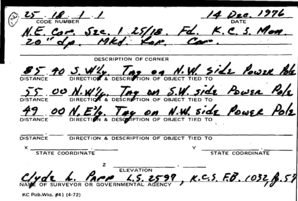 25 18 1 1 14 Dec. 1976
CODE NUMBER DATE
N.E. Cor. Sec. 1 25/18. Fd. K.C.S. Mon.
20" dp. Mkd. Cor.
DESCRIPTION OF CORNER
85 90 S.W'ly. Tag on N.W. side Power Pole
DISTANCE DIRECTION & DESCRIPTION OF OBJECT TIED TO
55 00 N.W'ly. Tag on S.W. side Power Pole
DISTANCE DIRECTION & DESCRIPTION OF OBJECT TIED TO
49 00 N.E'ly. Tag on N.W. side Power Pole
DISTANCE DIRECTION & DESCRIPTION OF OBJECT TIED TO
DISTANCE DIRECTION & DESCRIPTION OF OBJECT TIED TO
X Y
STATE COORDINATE STATE COORDINATE
Z
ELEVATION
Clyde L. L.S. 2599, K.C.S. F.B. 1032, p. 59
NAME OF SURVEYOR OR GOVERNMENTAL AGENCY
KC Pub.Wks. #61 (4-72)